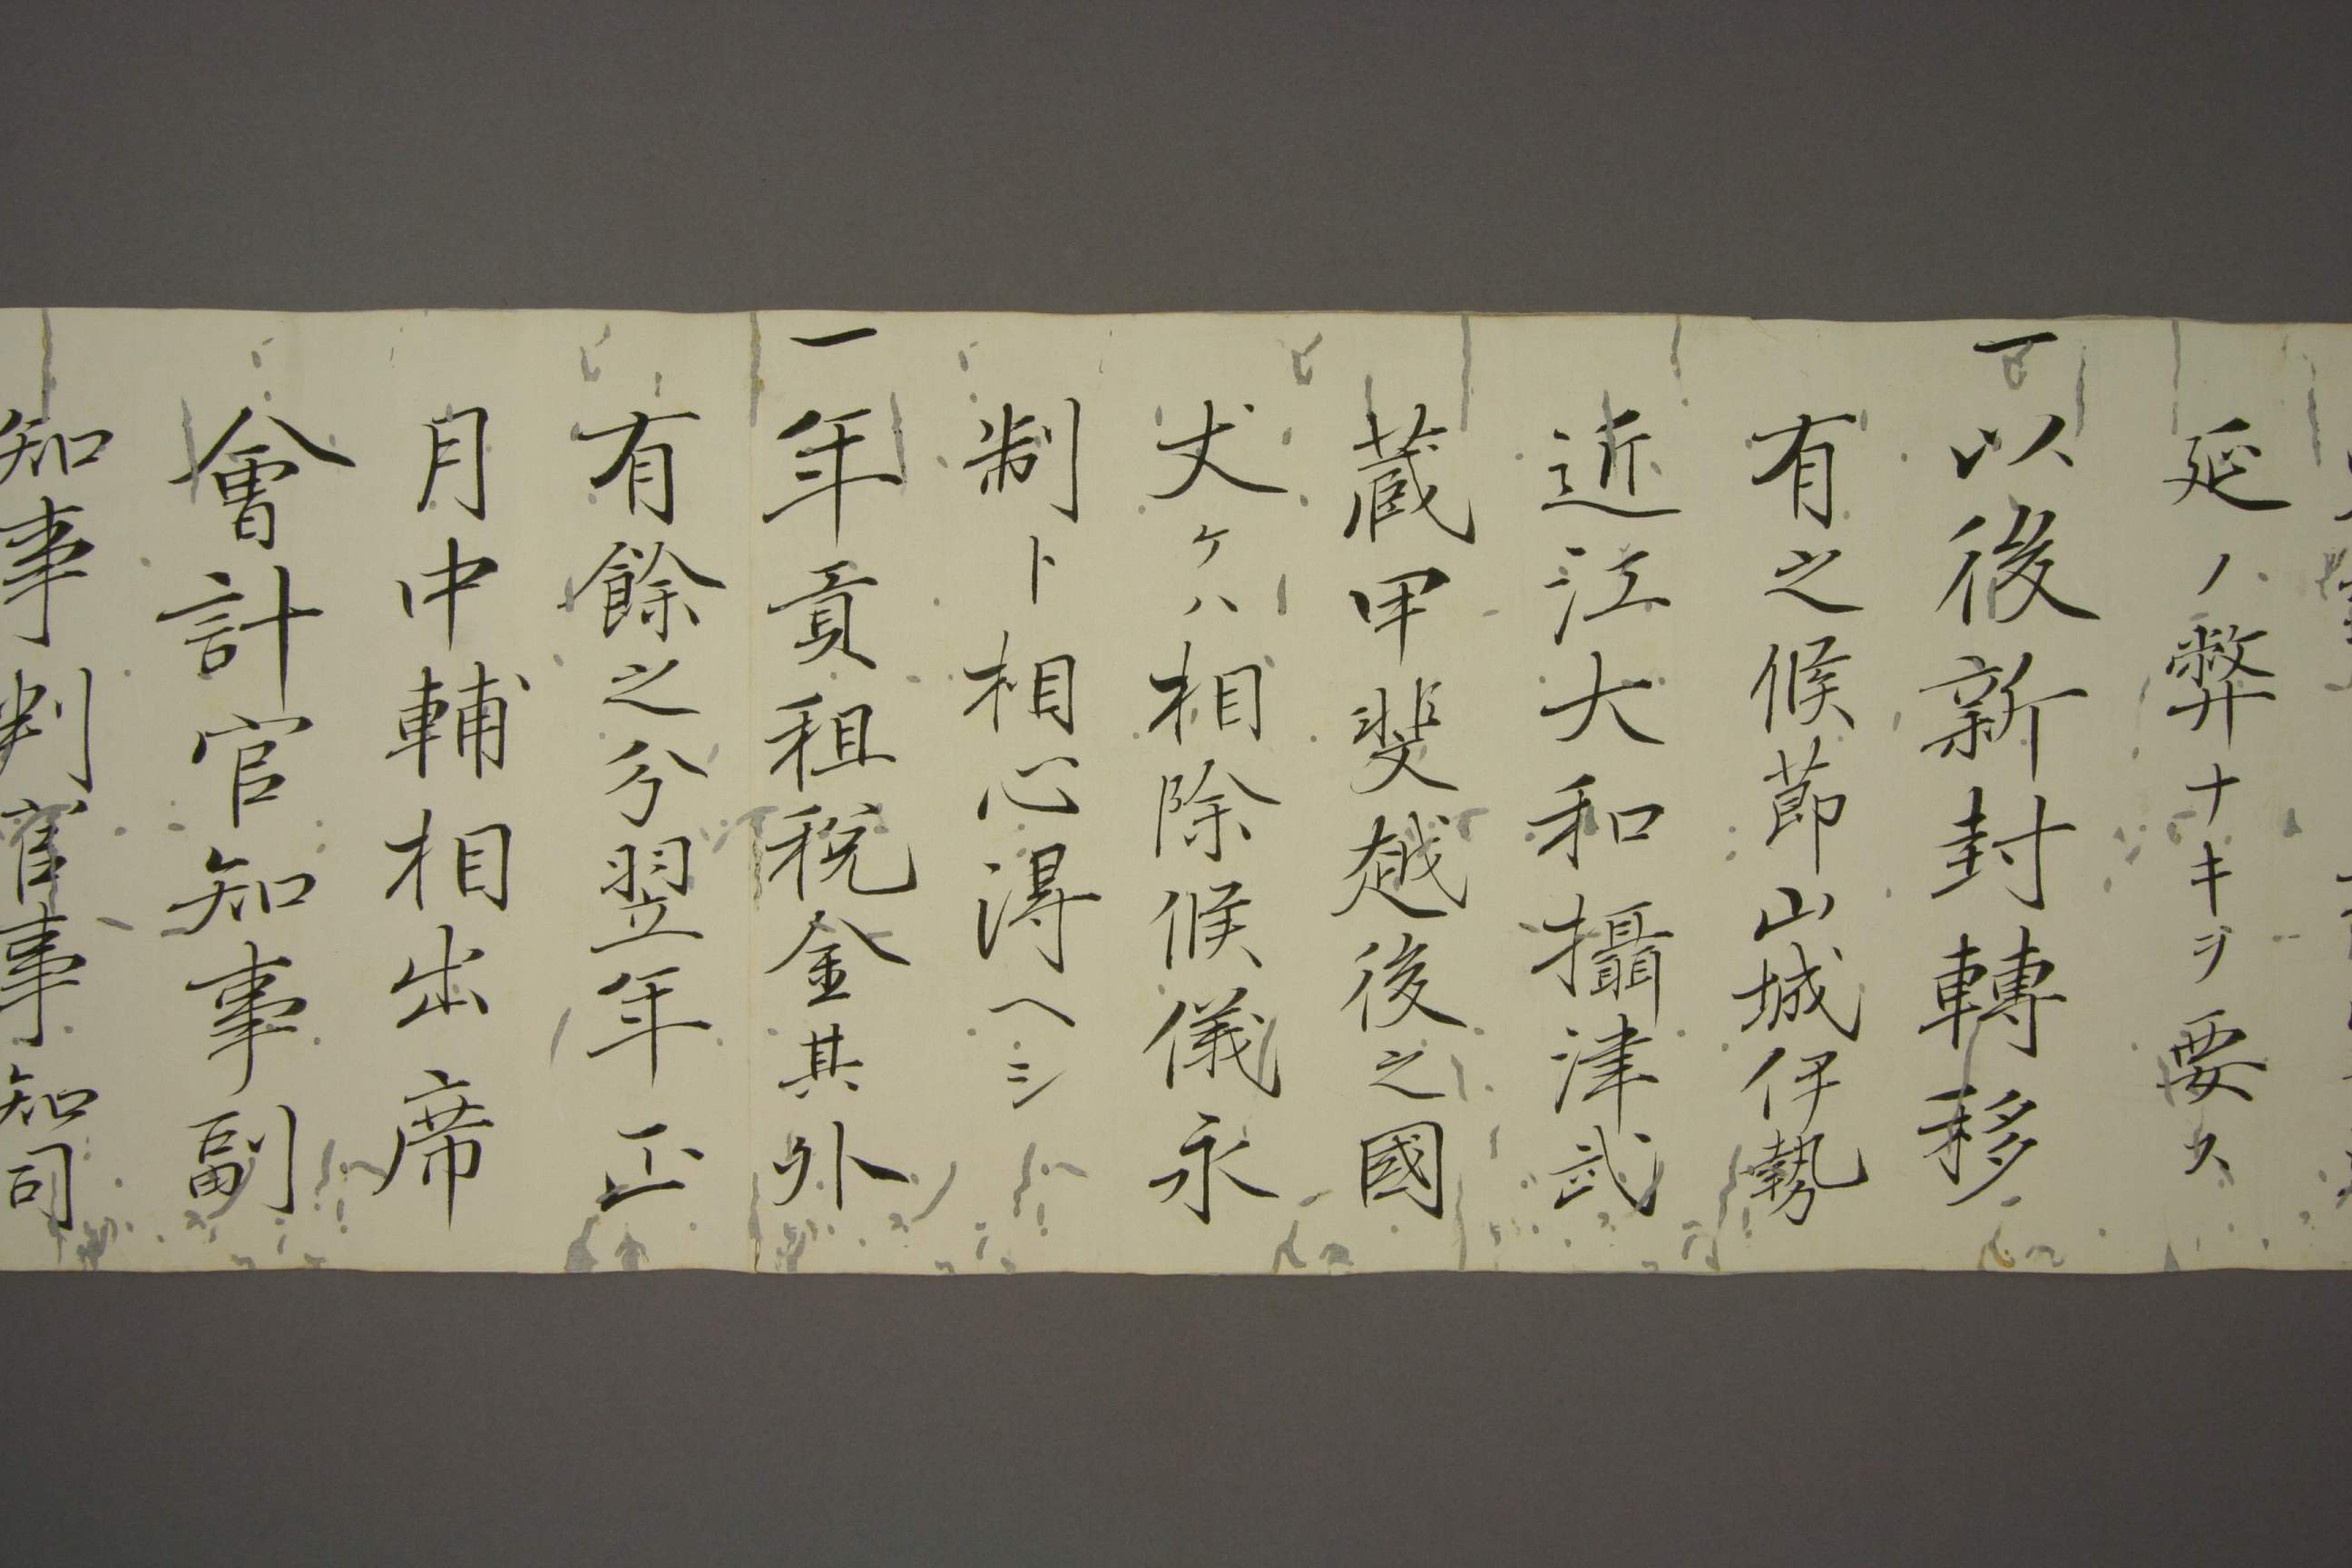 延ノ弊ナキヲ要ス
一以後新封轉移
有之候節山城伊勢
近江大和攝津武
蔵甲斐越後之國
丈ケハ相除候儀永
制ト相心得ヘシ
一年貢租税金其外
有餘之分翌年正
月中輔相出席
會計官知事副
知事判官事知司